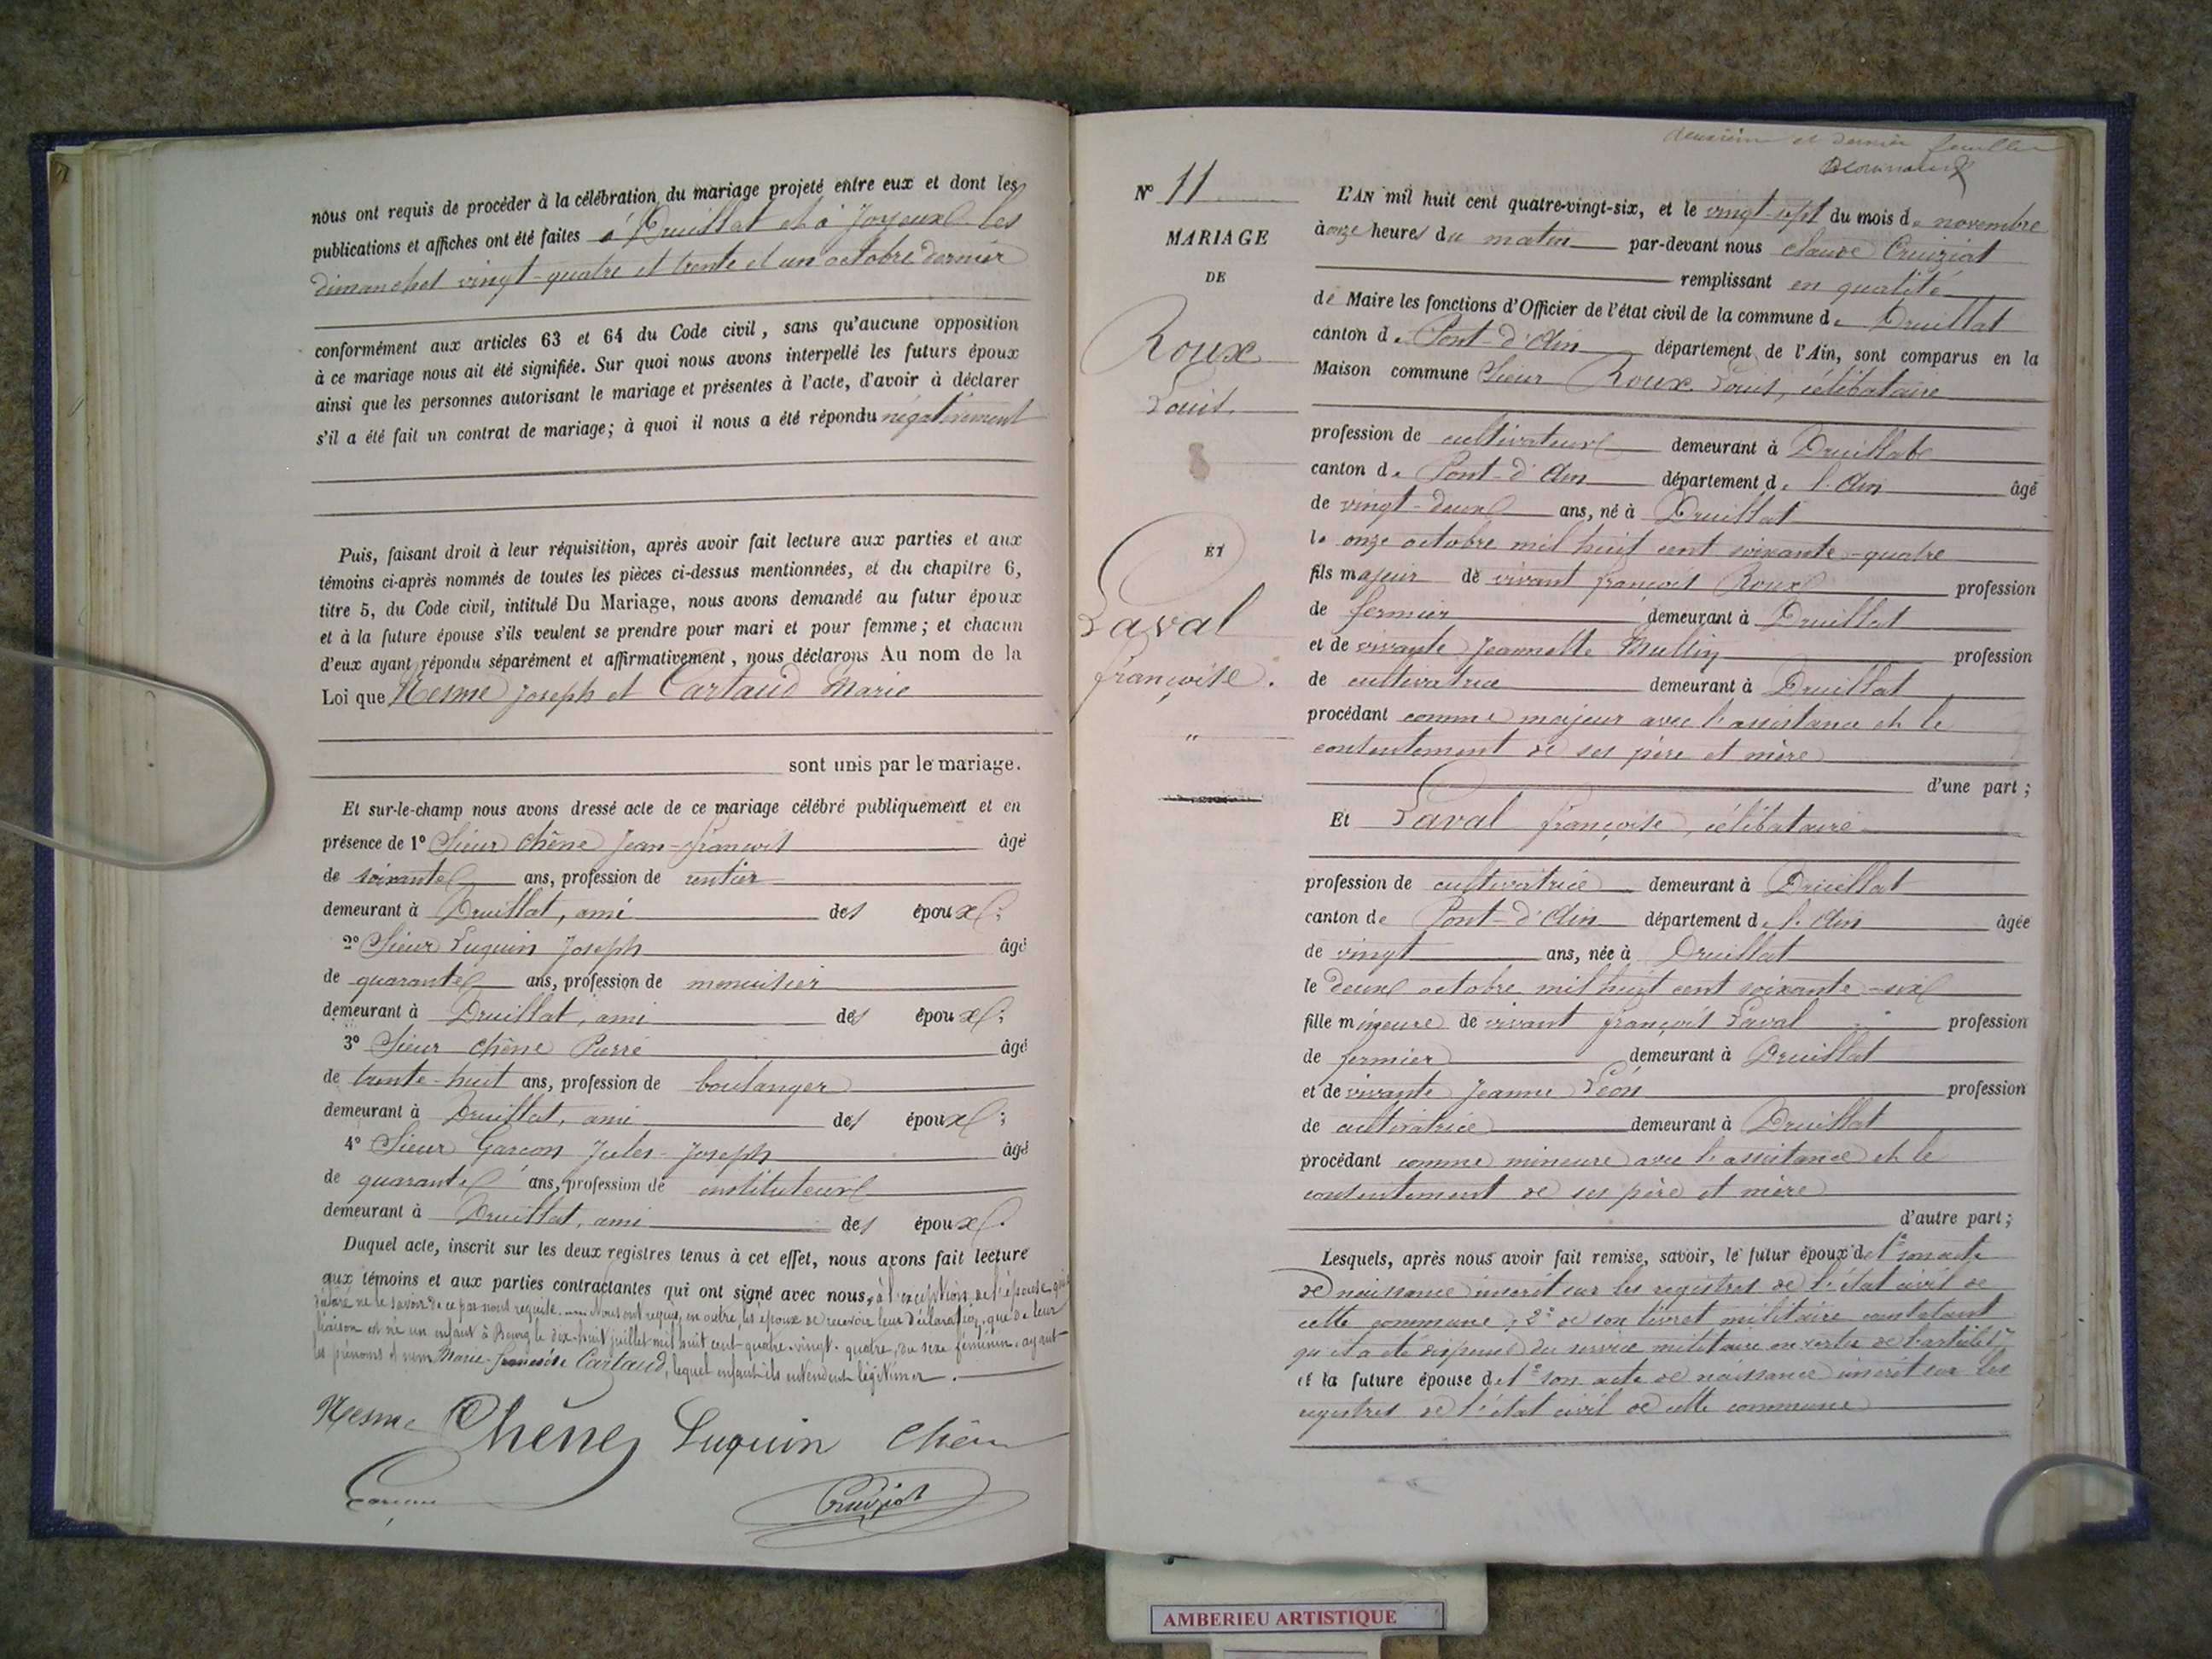 nous ont requis de procéder à la célébration du mariage projeté entre eux et dont les
publications et affiches ont été faites à Druillat et à Joyeux les
dimanches vingt-quatre et trente et un octobre dernier
conformément aux articles 63 et 64 du Code civil, sans qu'aucune opposition
à ce mariage nous ait été signifiée. Sur quoi nous avons interpellé les futurs époux
ainsi que les personnes autorisant le mariage et présentes à l'acte, d'avoir à déclarer
s'il a été fait un contrat de mariage; à quoi il nous a été répondu négativement
Puis, faisant droit à leur réquisition, après avoir fait lecture aux parties et aux
témoins ci-après nommés de toutes les pièces ci-dessus mentionnées, et du chapitre 6,
titre 5, du Code civil, intitulé Du Mariage, nous avons demandé au futur époux
et à la future épouse s'ils veulent se prendre pour mari et pour femme; et chacun
d'eux ayant répondu séparément et affirmativement, nous déclarons Au nom de la
Loi que Nesme Joseph et Cartaud Marie
sont unis par le mariage.
Et sur-le-champ nous avons dressé acte de ce mariage célébré publiquement et en
présence de 1° Sieur Chêne Jean-François âgé
de soixante ans, profession de rentier
demeurant à Druillat, ami des époux;
2° Sieur Luquin Joseph âgé
de quarante ans, profession de menuisier
demeurant à Druillat, ami des époux;
3° Sieur Chêne Pierre âgé
de trente-huit ans, profession de boulanger
demeurant à Druillat, ami des époux;
4° Sieur Garcon Jules-Joseph âgé
de quarante ans, profession de instituteur
demeurant à Druillat, ami des époux.
Duquel acte, inscrit sur les deux registres tenus à cet effet, nous avons fait lecture
aux témoins et aux parties contractantes qui ont signé avec nous, à l'exception de l'épouse qui
déclaré ne le savoir de ce par nous requise. Nous ont requis, en outre, les époux de recevoir leur déclaration, que de leur
liaison est né un enfant à Bourg le dix-huit juillet mil huit cent quatre-vingt-quatre, du sexe féminin, ayant
les prénoms et nom Marie-Françoise Cartaud, lequel enfant ils entendent légitimer.
Nesme Chêne Luquin Chêne
Garcon Cruiziat
deuxième et dernier feuillet
N° 11
MARIAGE
DE
Roux
Louis.
ET
Laval
françoise.
L'AN mil huit cent quatre-vingt-six, et le vingt-sept du mois de novembre
à onze heures du matin par-devant nous Claude Cruiziat
remplissant en qualité
de Maire les fonctions d'Officier de l'état civil de la commune de Druillat
canton de Pont-d'Ain département de l'Ain, sont comparus en la
Maison commune Sieur Roux Louis, célibataire
profession de cultivateur demeurant à Druillat
canton de Pont-d'Ain département de l'Ain âgé
de vingt-deux ans, né à Druillat
le onze octobre mil huit cent soixante-quatre
fils majeur de vivant françois Roux profession
de fermier demeurant à Druillat
et de vivante Jeannette Mullin profession
de cultivatrice demeurant à Druillat
procédant comme majeur avec l'assistance et le
contentement de ses père et mère
d'une part;
Et Laval françoise, célibataire
profession de cultivatrice demeurant à Druillat
canton de Pont-d'Ain département de l'Ain âgée
de vingt ans, née à Druillat
le deux octobre mil huit cent soixante-six
fille mineure de vivant françois Laval profession
de fermier demeurant à Druillat
et de vivante Jeanne Léon profession
de cultivatrice demeurant à Druillat
procédant comme mineure avec l'assistance et le
contentement de ses père et mère
d'autre part;
Lesquels, après nous avoir fait remise, savoir, le futur époux de 1° son acte
de naissance inscrit sur les registres de l'état civil de
cette commune; 2° de son livret militaire constatant
qu'il a été dispensé du service militaire en vertu de l'article 17
et la future épouse de 1° son acte de naissance inscrit sur les
registres de l'état civil de cette commune
AMBERIEU ARTISTIQUE